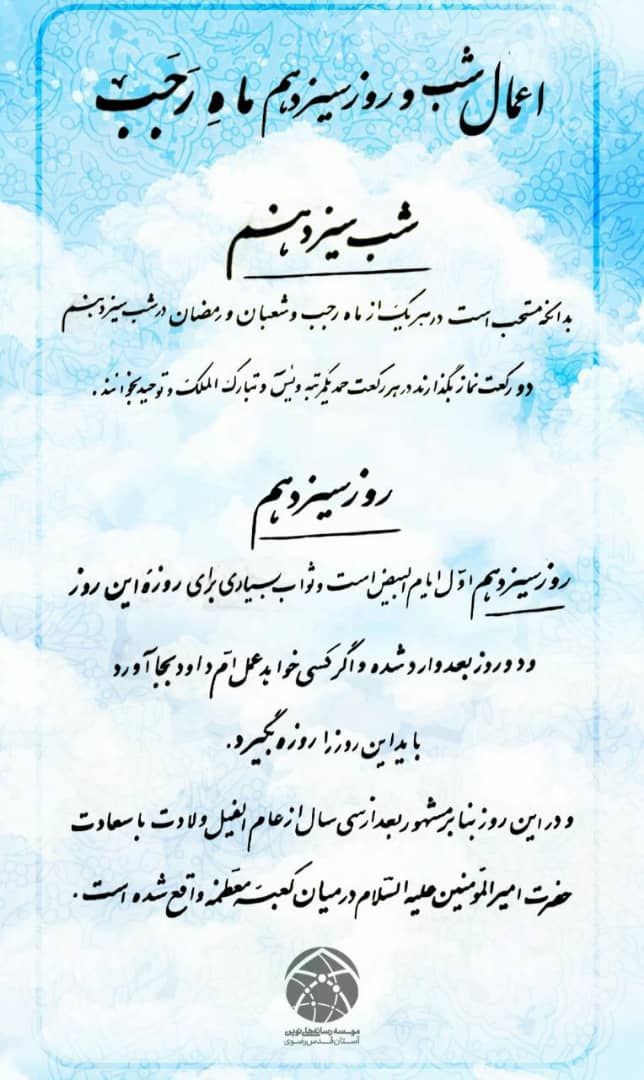 اعمال شب و روز سیزدهم ماهِ رَجَب
شب سیزدهم
بدانکه مستحب است در هر یک از ماه رجب و شعبان و رمضان در شب سیزدهم
دو رکعت نماز بگذارند در هر رکعت حمد یکمرتبه و یٰسٓ و تبارک الملک و توحید بخوانند.
روز سیزدهم
روز سیزدهم اوّل ایام البیض است و ثواب بسیاری برای روزۀ این روز
و دو روز بعد وارد شده و اگر کسی خواهد عمل اُمّ داود بجا آورد
باید این روز را روزه بگیرد.
و در این روز بنا بر مشهور بعد از سی سال از عام الفیل ولادت با سعادت
حضرت امیرالمؤمنین علیه السّلام در میان کعبه معظّمه واقع شده است.
موسسه رسانه‌های نوین
آستان قدس رضوی